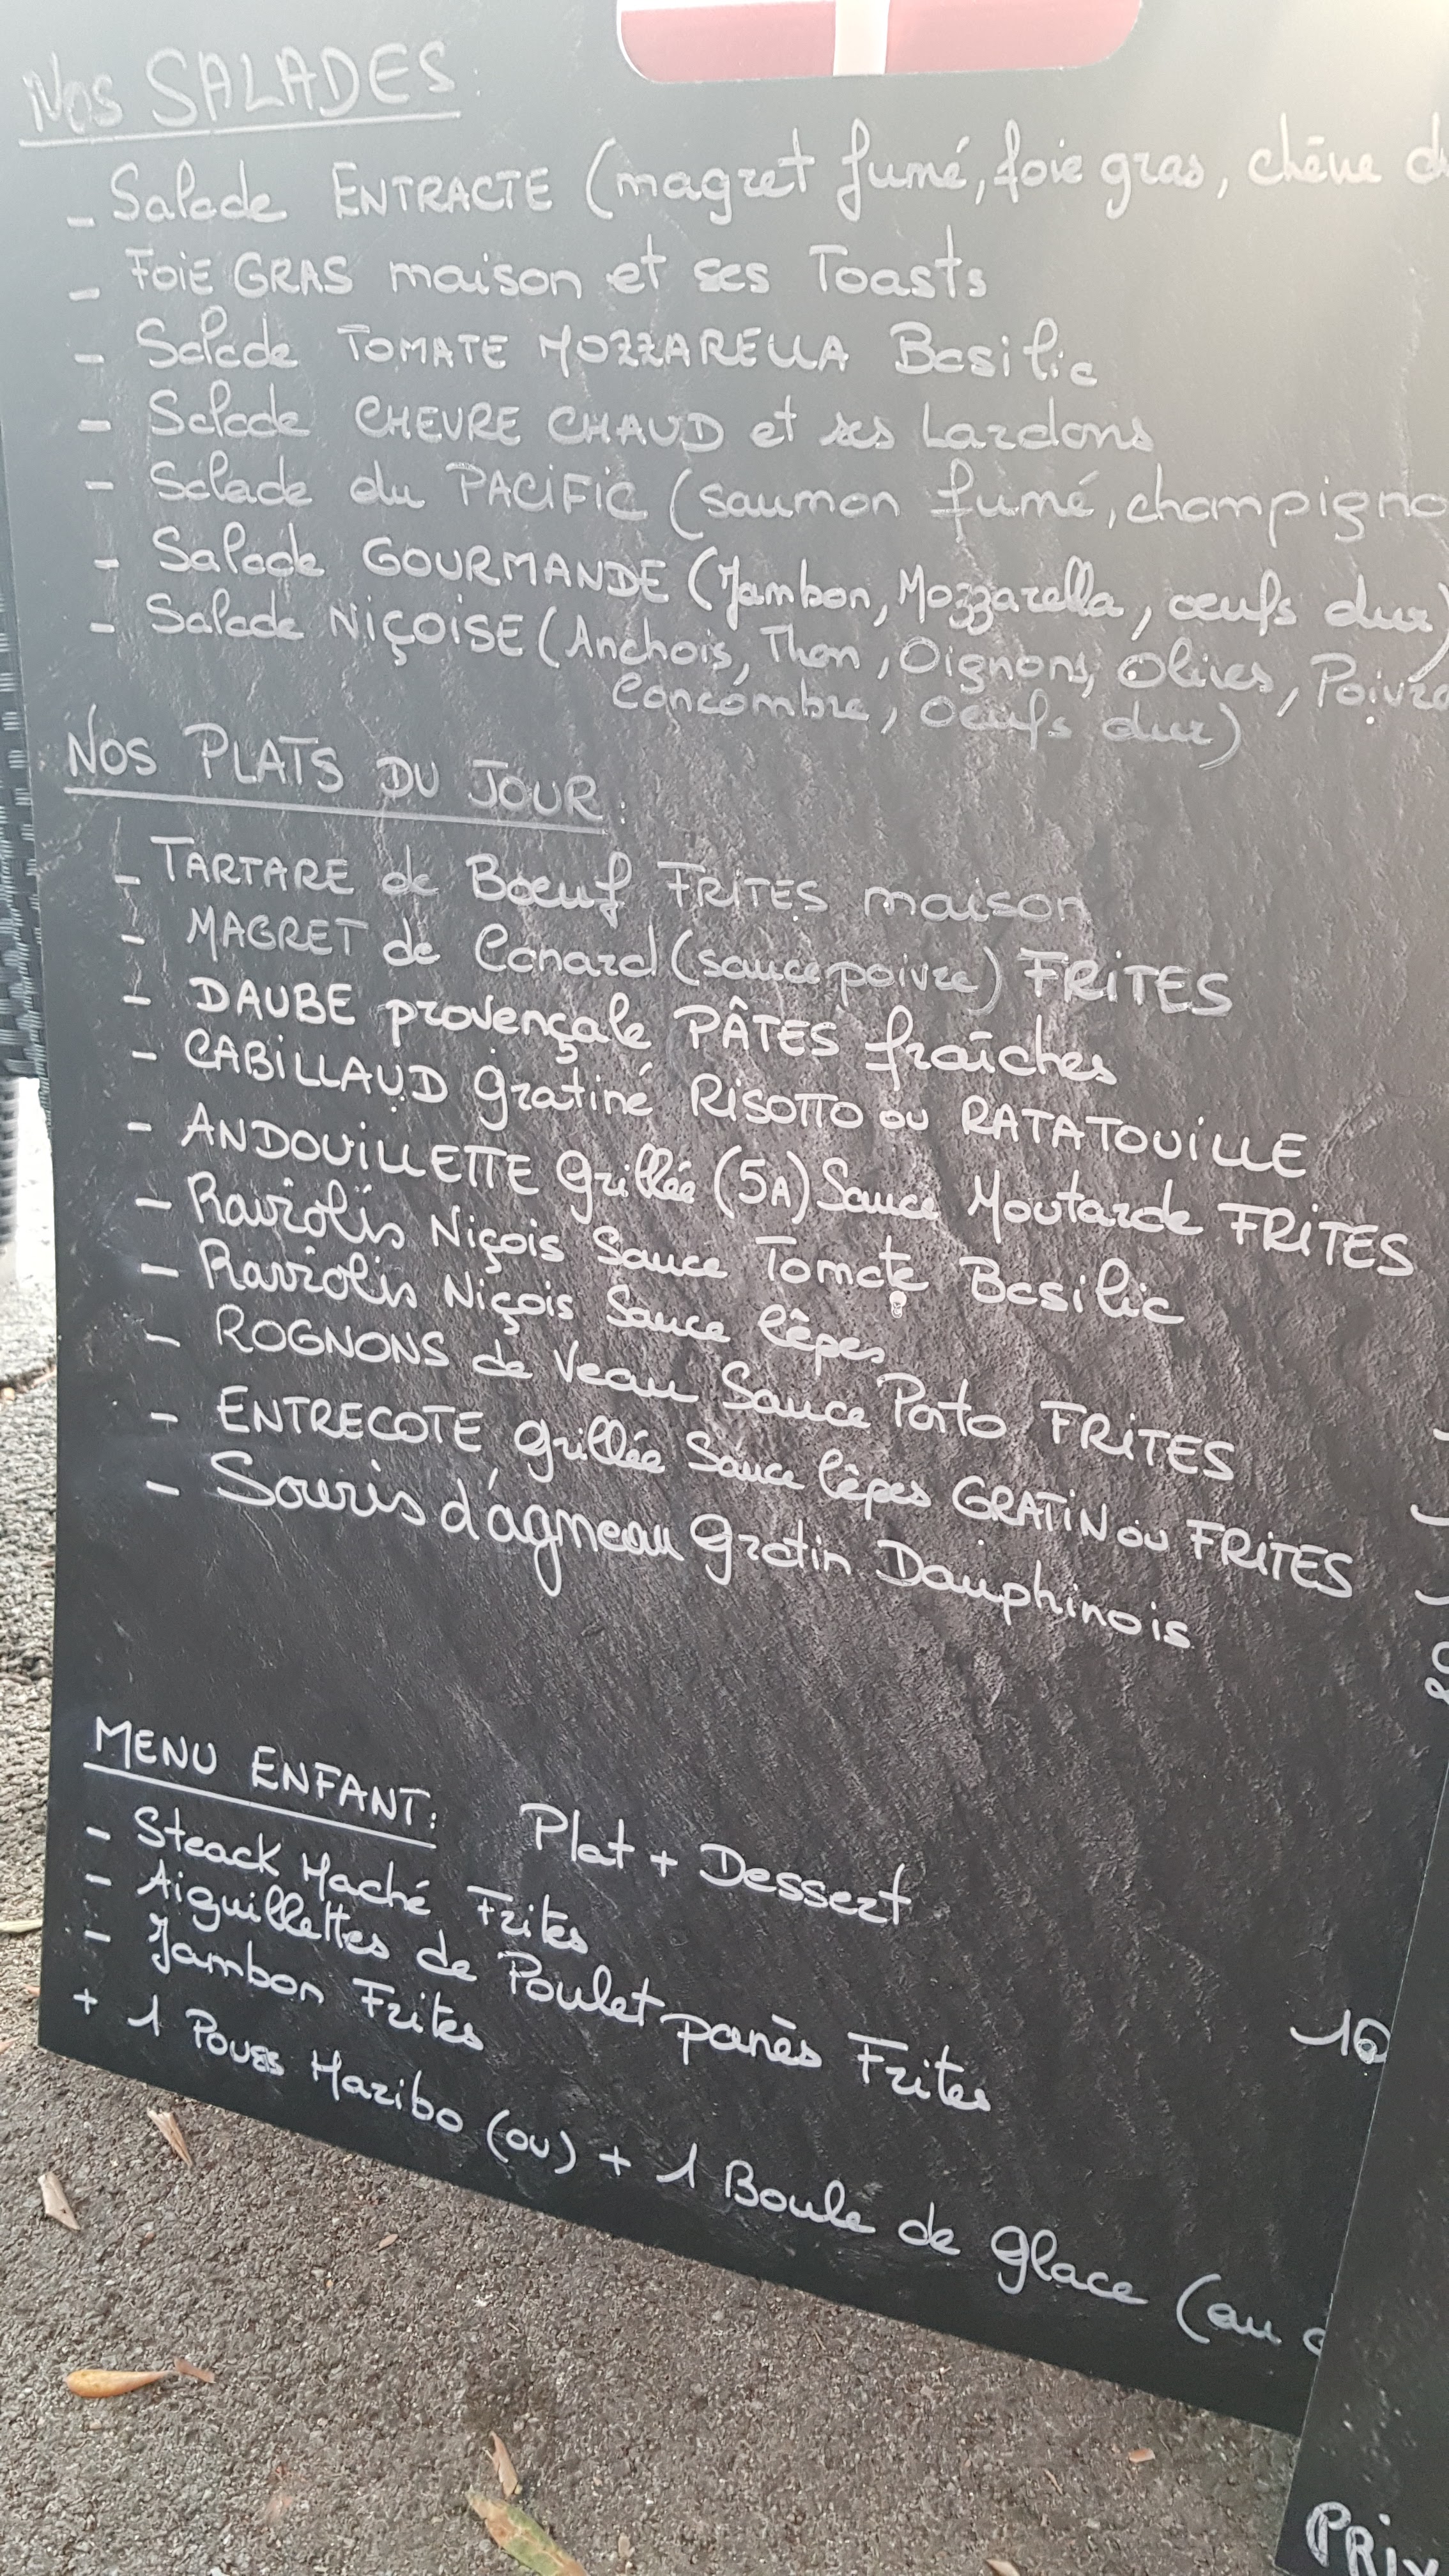 Nos SALADES
- Salade ENTRACTE (magret fumé, foie gras, chêne
- FOIE GRAS maison et ses Toasts
- Salade TOMATE MOZZARELLA Basilic
- Salade CHEVRE CHAUD et ses Lardons
- Salade du PACIFIC (saumon fumé, champigno
- Salade GOURMANDE (Jambon, Mozzarella, oeufs dur)
- Salade NIÇOISE (Anchois, Thon, Oignons, Olives, Poivro
Concombre, Oeufs dur)
NOS PLATS DU JOUR:
- TARTARE de Boeuf FRITES maison
- MAGRET de Canard (sauce poivre) FRITES
- DAUBE provençale PÂTES fraîches
- CABILLAUD gratiné RISOTTO ou RATATOUILLE
- ANDOUILLETTE grillée (5A) Sauce Moutarde FRITES
- Raviolis Niçois Sauce Tomate Basilic
- Raviolis Niçois Sauce Cêpes
- ROGNONS de Veau Sauce Porto FRITES
- ENTRECOTE grillée Sauce Cêpes GRATIN ou FRITES
- Souris d'agneau gratin Dauphinois
MENU ENFANT: Plat + Dessert
- Steack Haché Frites
- Aiguillettes de Poulet panés Frites
- Jambon Frites
10
+ 1 Pouss Haribo (ou) + 1 Boule de glace (au
PRIX